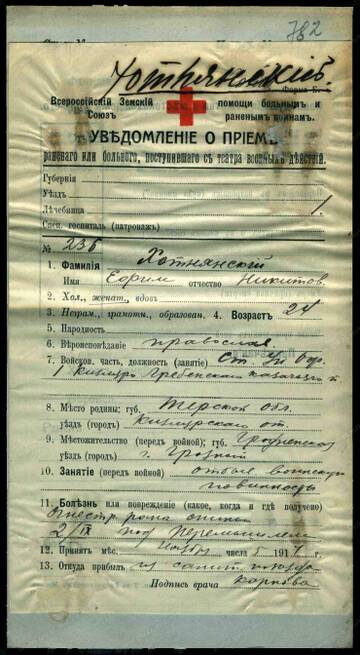 782
Хотнянскій
Форма Б.
Всероссійскій Земскій Союзъ
помощи больнымъ и раненымъ воинамъ.
УВѢДОМЛЕНІЕ О ПРІЕМѢ
раненаго или больного, поступившаго съ театра военныхъ дѣйствій.
Губернія
Уѣздъ
Лѣчебница 1.
Спец. госпиталь (патронажъ)
№ 236
1. Фамилія Хотнянскій
Имя Ефрим отчество Никитов.
2. Хол., женат., вдов.
3. Неграм., грамотн., образован. 4. Возрастъ 24
5. Народность
6. Вѣроисповѣданіе православ
7. Войсков. часть, должность (занятіе) Ст. Ун.
1 Кизляро Гребенскаго казачьяго п
8. Мѣсто родины; губ. Терской обл.
уѣздъ (городъ) Кизлярскаго от.
9. Мѣстожительство (передъ войной); губ. Грозненской
уѣздъ (городъ) г. Грозный
10. Занятіе (передъ войной) отбыв. воинскую
повинность
11. Болѣзнь или поврежденіе (какое, когда и гдѣ получено)
Огнестр. рана спины
2/IX под Перемышлем
12. Принятъ мѣс. Ноября числа 5 1914 г.
13. Откуда прибылъ из санит. поѣзда
Подпись врача Карпова